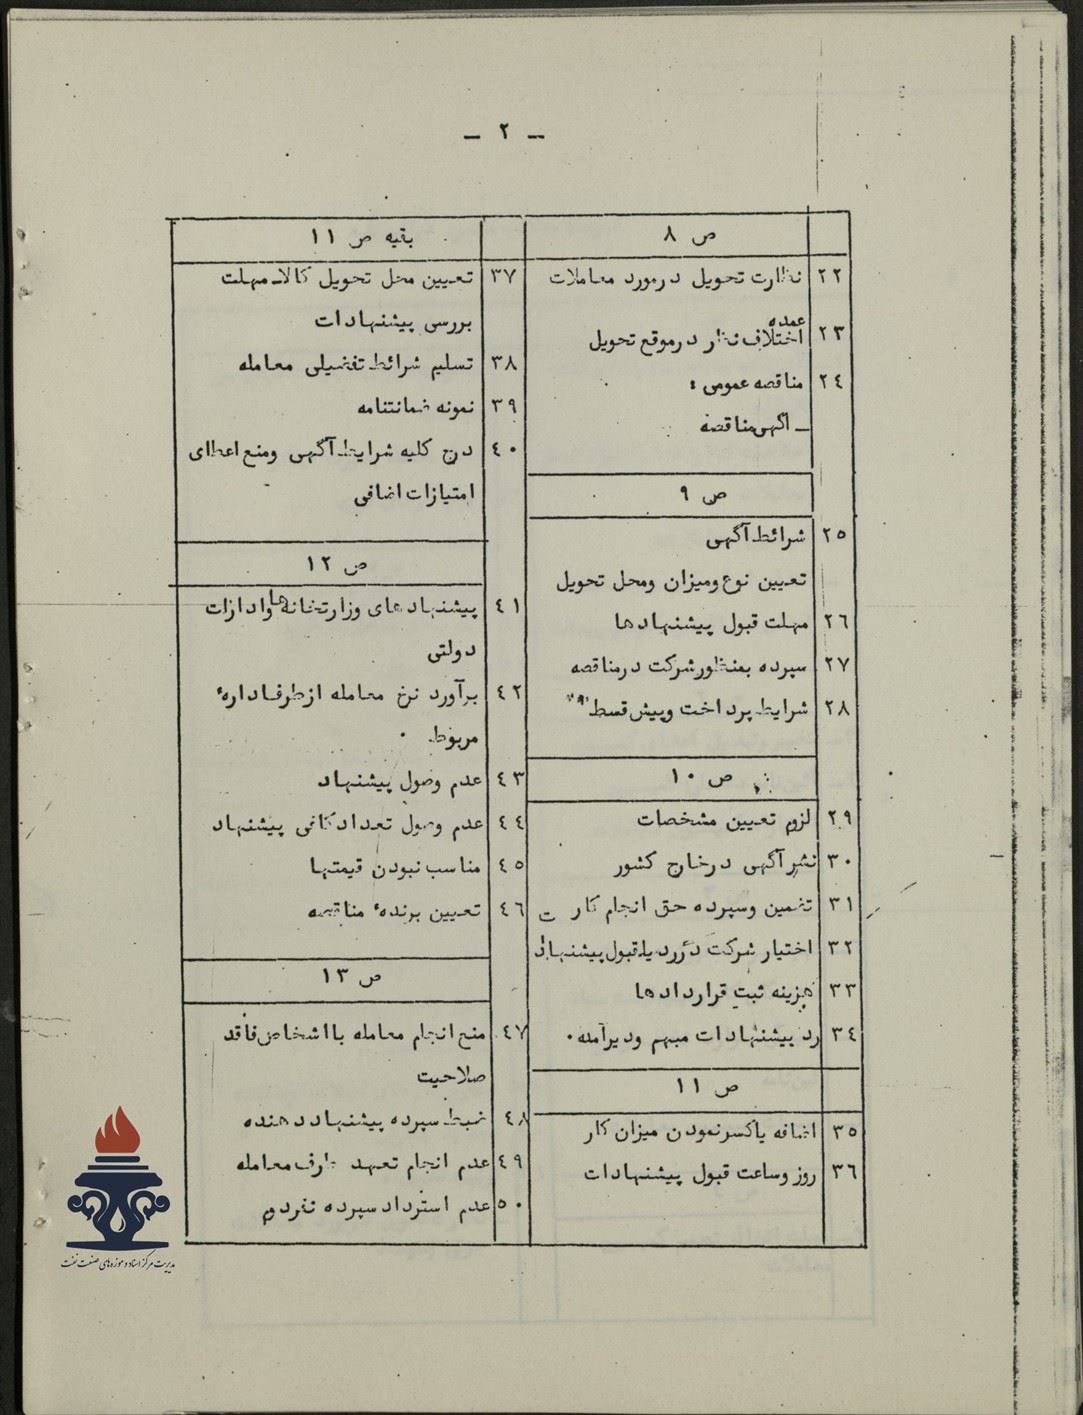 – ۲ –
ص ۸
۲۲ نظارت تحویل درمورد معاملات
عمده
۲۳ اختلاف نظر درموقع تحویل
۲٤ مناقصه عمومی :
ـ آگهی مناقصه
ص ۹
۲۵ شرائط آگهی
تعیین نوع ومیزان ومحل تحویل
۲٦ مهلت قبول پیشنهادها
۲۷ سپرده بمنظور شرکت درمناقصه
۲۸ شرایط پرداخت وپیش قسط
ص ۱۰
۲۹ لزوم تعیین مشخصات
۳۰ نشر آگهی درخارج کشور
۳۱ تضمین وسپرده حق انجام کار
۳۲ اختیار شرکت درردیا قبول پیشنهاد
۳۳ هزینه ثبت قراردادها
۳٤ رد پیشنهادات مبهم ودیرآمده ۰
ص ۱۱
۳۵ اضافه یاکسرنمودن میزان کار
۳٦ روز وساعت قبول پیشنهادات
بقیه ص ۱۱
۳۷ تعیین محل تحویل کالا ـ مهلت
بررسی پیشنهادات
۳۸ تسلیم شرائط تفضیلی معامله
۳۹ نمونه ضمانتنامه
٤۰ درج کلیه شرایط آگهی ومنع اعطای
امتیازات اضافی
ص ۱۲
٤۱ پیشنهادهای وزارتخانه‌ها وادارات
دولتی
٤۲ برآورد نرخ معامله ازطرف ادارهٔ
مربوط ۰
٤۳ عدم وصول پیشنهاد
٤٤ عدم وصول تعداد کافی پیشنهاد
٤۵ مناسب نبودن قیمتها
٤٦ تعیین برندهٔ مناقصه
ص ۱۳
٤۷ منع انجام معامله بااشخاص فاقد
صلاحیت
٤۸ ضبط سپرده پیشنهاددهنده
٤۹ عدم انجام تعهد طرف معامله
۵۰ عدم استرداد سپرده نفردوم
مدیریت مرکز اسناد و موزه‌های صنعت نفت